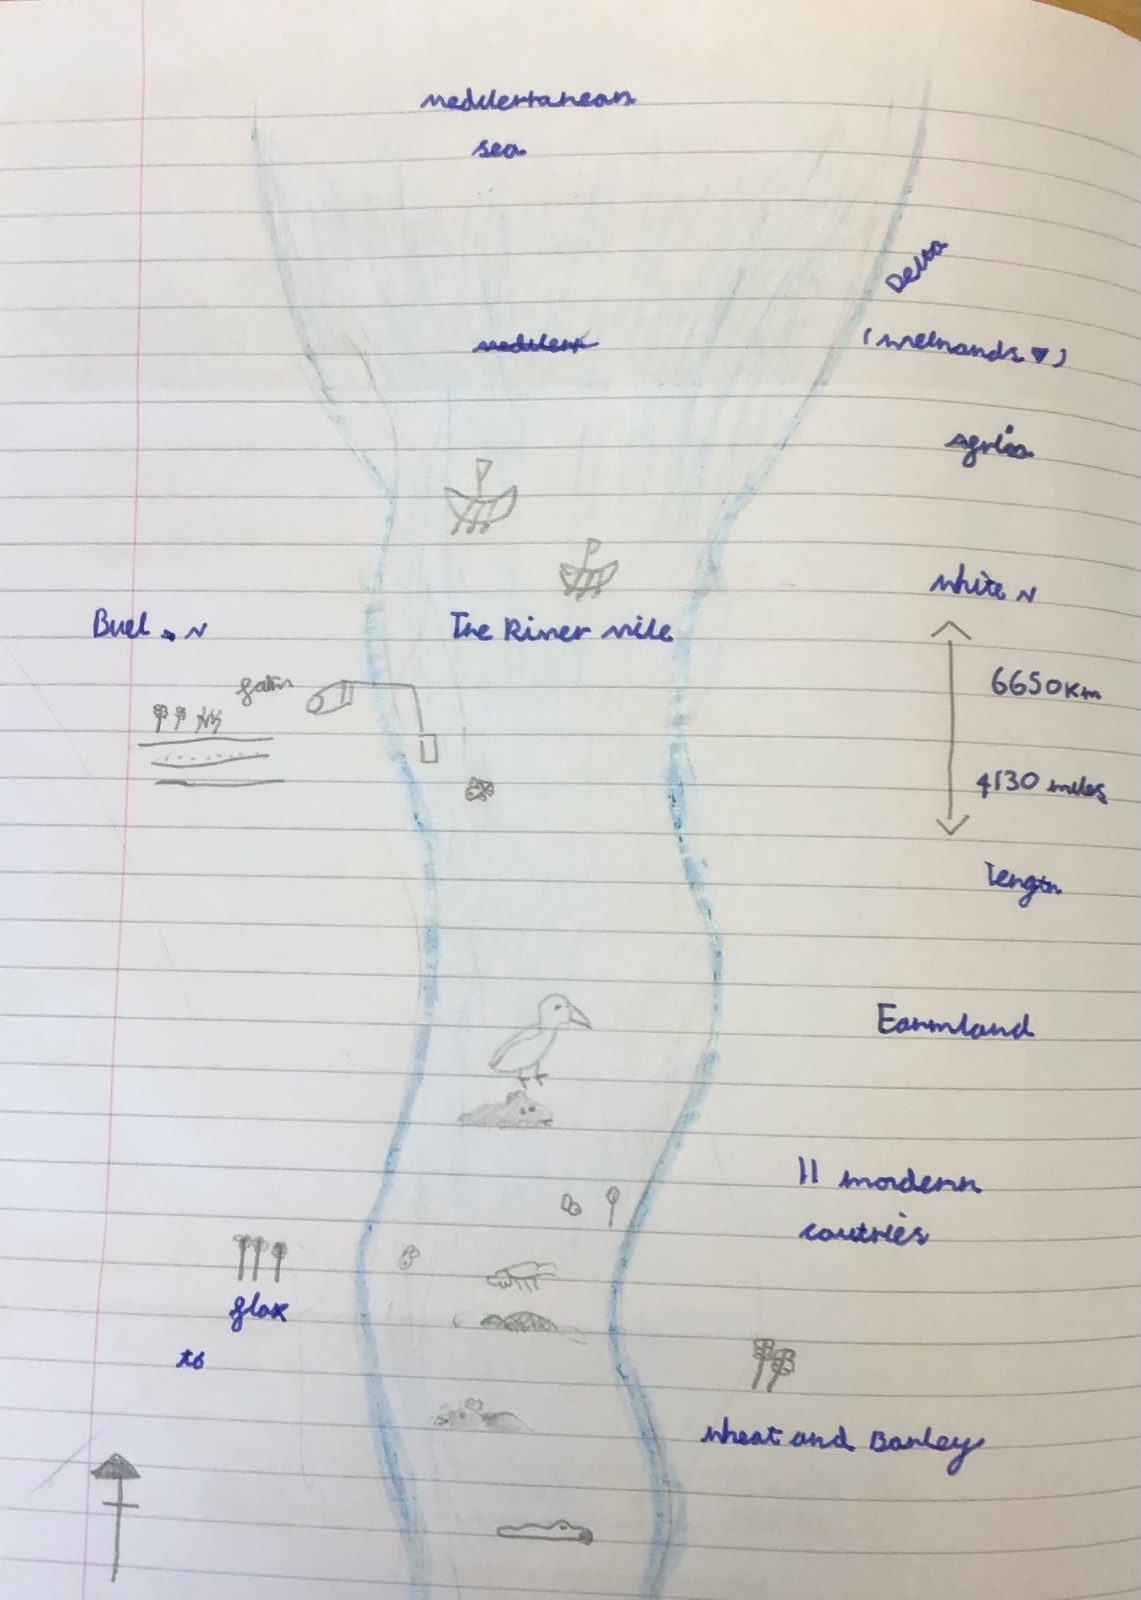 mediterranean
sea
Delta
(wetlands ▼)
Africa
white N
Buel N
The River nile
6650km
4130 miles
length
Farmland
11 mordern
coutries
flax
to
wheat and Barley